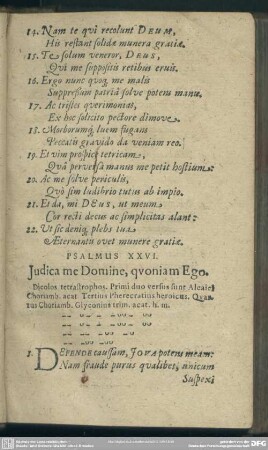 14. Nam te qvi recolunt DEUM,
His restant solidæ munera gratiæ.
15. Te solum veneror, DEUS,
Qvi me suppositis retibus eruis.
16. Ergo nunc quoq, me malis
Suppressum patriâ solve potens manu.
17. Ac tristes qverimonias,
Ex hoc solicito pectore dimove.
18. Morborumq́, luem fugans
Peccati gravido da veniam reo.
19. Et vim prospice tetricam,
Quâ perversa manus me petit hostium:
20. Ac me solve periculis,
Quò sim ludibrio tutus ab impio.
21. Et da, mi DEUS, ut meum
Cor recti decus ac simplicitas alant:
22. Ut sic deniq, plebs tua
Æternantis ovet munere gratiæ.
PSALMUS XXVI.
Judica me Domine, qvoniam Ego.
Dicolos tetrastrophos. Primi duo versus sunt Alcaic.
Choriamb. acat Tertius Pherecratius heroicus. Quar-
tus Choriamb. Glyconius trim. acat. h. m.
1. DEFENDE caussam, JOVA potens meam:
Nam fraude purus qvalibet, unicum
Suspexi